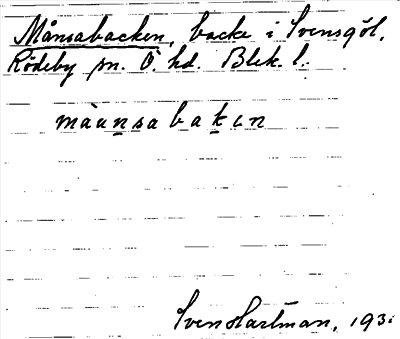 Månsabacken, backe i Svensgöl,
Rödeby sn. Ö. hd. Blek. l.
màunsabakɛn
Sven Hartman, 193